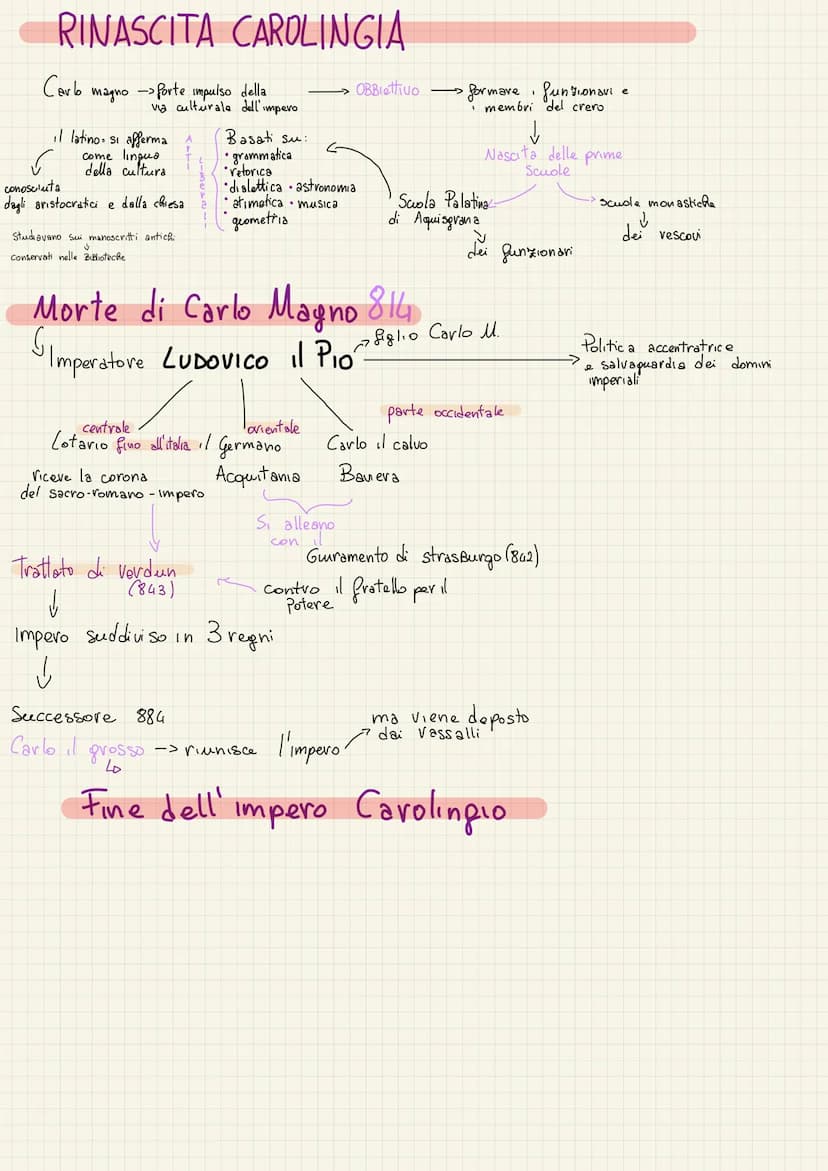 RINASCITA CAROLINGIA
Carlo magno → forte impulso della → OBBiettivo → formare i funzionari e
via culturale dell'impero
i membri del crero
il latino: si afferma
come lingua
della cultura
conosciuta
dagli aristocratici e dalla chiesa
Studiavano sui manoscritti antichi
conservati nelle Biblioteche
Arti liberali
Basati su:
• grammatica
• retorica
• dialettica • astronomia
• atimatica • musica
• geometria
Nascita delle prime
Scuole
Scuola Palatina
di Aquisgrana
dei funzionari
scuole monastiche
dei vescovi
Morte di Carlo Magno 814
Imperatore LUDOVICO il PIO
figlio Carlo M.
Politica accentratrice
e salvaguardia dei domini
imperiali
centrale
Lotario fino all'italia
orientale
il Germano
parte occidentale
Carlo il calvo
riceve la corona
del sacro-romano-impero
Acquitania
Baviera
Si alleano
con il
Giuramento di strasburgo (842)
contro il fratello per il
potere
Trattato di Verdun
(843)
Impero suddiviso in 3 regni
Successore 884
Carlo il grosso → riunisce l'impero
ma viene deposto
dai vassalli
Fine dell'impero Carolingio